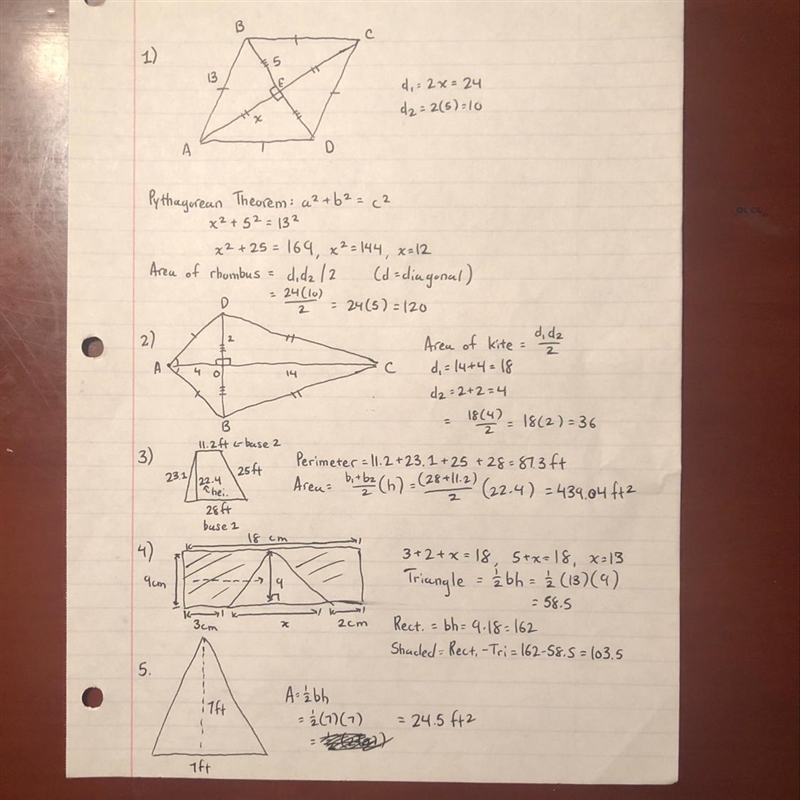 1)
B
C
13
5
E
x
A
D
d₁ = 2x = 24
d₂ = 2(5) = 10
Pythagorean Theorem: a² + b² = c²
x² + 5² = 13²
x² + 25 = 169, x² = 144, x = 12
Area of rhombus = d₁d₂/2 (d = diagonal)
= 24(10)/2 = 24(5) = 120
2)
D
2
A
4
O
14
C
B
Area of kite = d₁d₂/2
d₁ = 14+4 = 18
d₂ = 2+2 = 4
= 18(4)/2 = 18(2) = 36
3)
11.2 ft ← base 2
23.1
22.4
↑ hei.
25 ft
28 ft
base 2
Perimeter = 11.2 + 23.1 + 25 + 28 = 87.3 ft
Area = b₁+b₂/2 (h) = (28+11.2)/2 (22.4) = 439.04 ft²
4)
18 cm
9cm
9
3cm
x
2cm
3+2+x = 18, 5+x = 18, x = 13
Triangle = ½bh = ½(13)(9)
= 58.5
Rect. = bh = 9·18 = 162
Shaded = Rect. - Tri = 162 - 58.5 = 103.5
5.
7ft
7ft
A = ½bh
= ½(7)(7) = 24.5 ft²
=